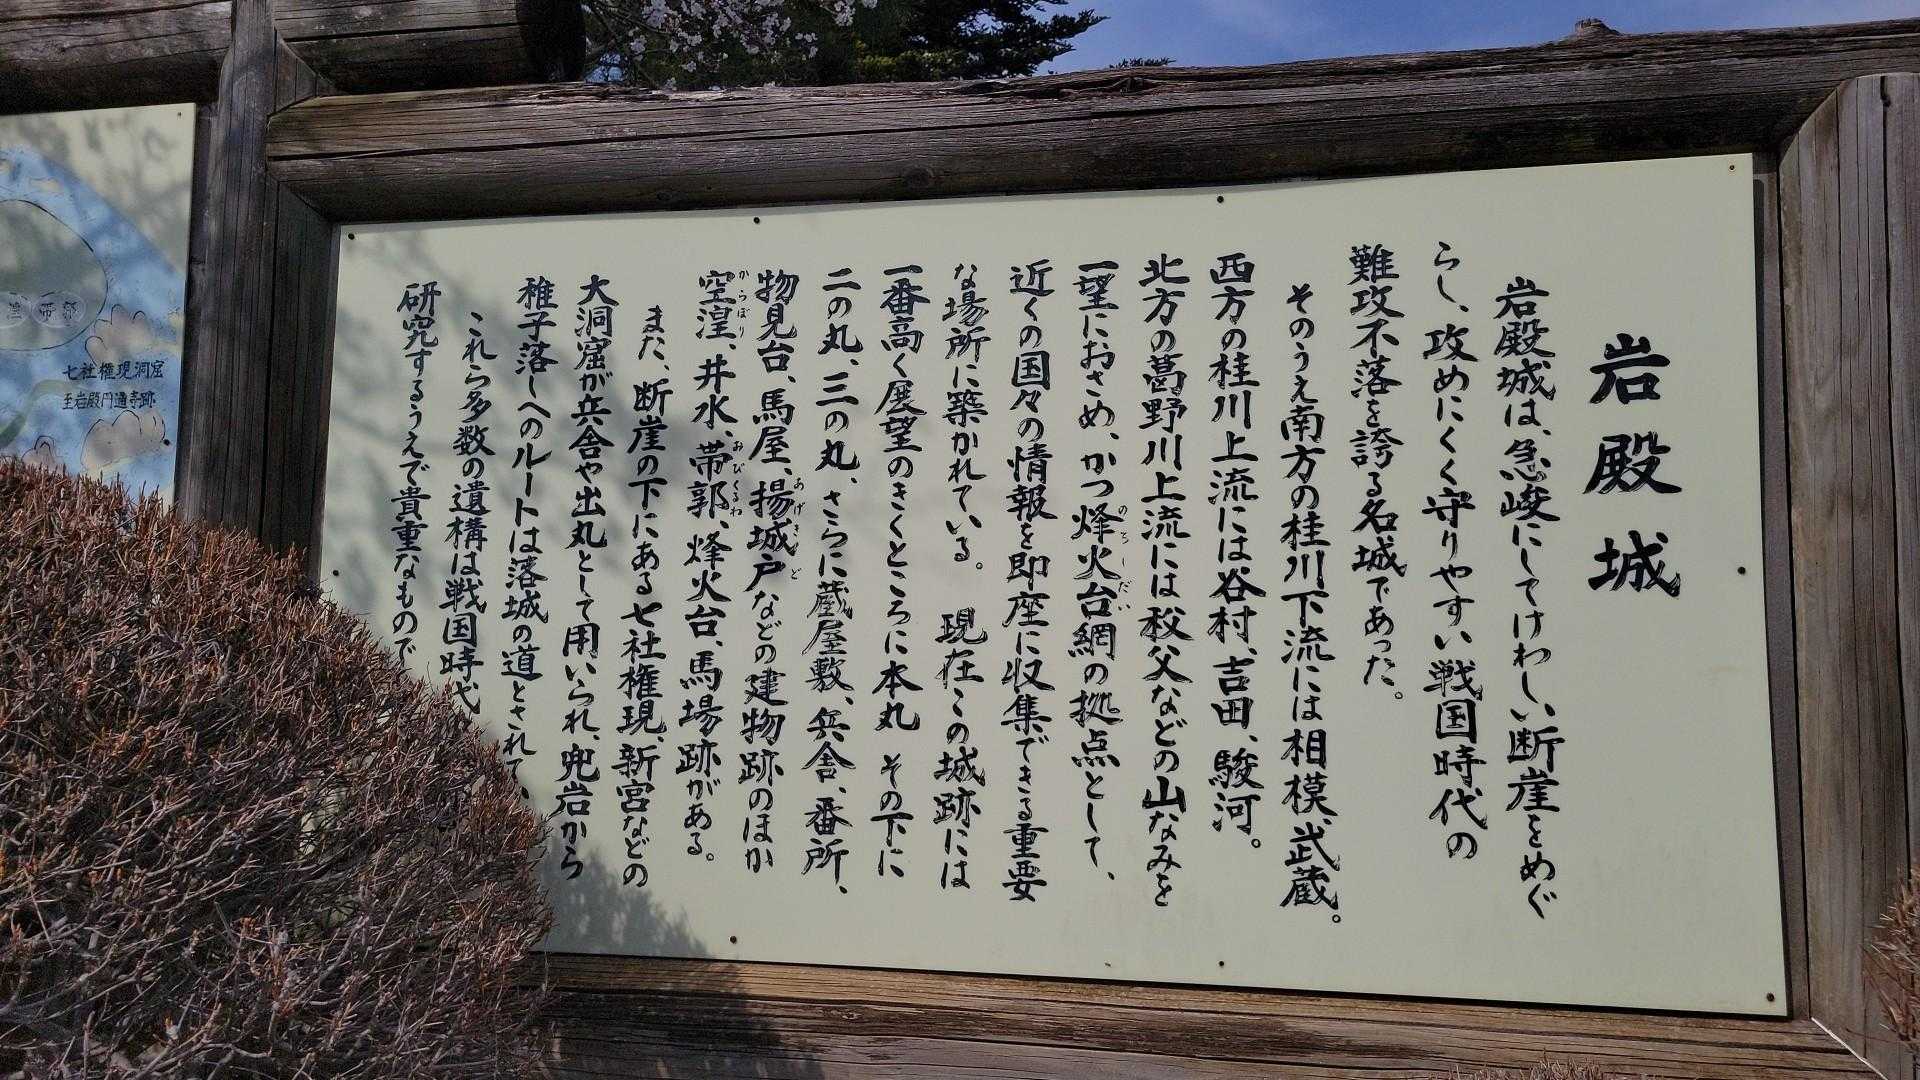 岩殿城
岩殿城は、急峻にしてけわしい断崖をめぐ
らし、攻めにくく守りやすい戦国時代の
難攻不落を誇る名城であった。
そのうえ南方の桂川下流には相模、武蔵。
西方の桂川上流には谷村、吉田、駿河。
北方の葛野川上流には秩父などの山なみを
一望におさめ、かつ烽火台網の拠点として、
のろしだい
近くの国々の情報を即座に収集できる重要
な場所に築かれている。 現在この城跡には
一番高く展望のきくところに本丸 その下に
二の丸、三の丸、さらに蔵屋敷、兵舎、番所、
物見台、馬屋、揚城戸などの建物跡のほか
あげきど
空湟、井水、帯郭、烽火台、馬場跡がある。
からぼり
おびくるわ
また、断崖の下にある七社権現、新宮などの
大洞窟が兵舎や出丸として用いられ、兜岩から
稚子落しへのルートは落城の道とされて
これら多数の遺構は戦国時代
研究するうえで貴重なもので
湟
帯郭
七社権現洞窟
至岩殿円通寺跡